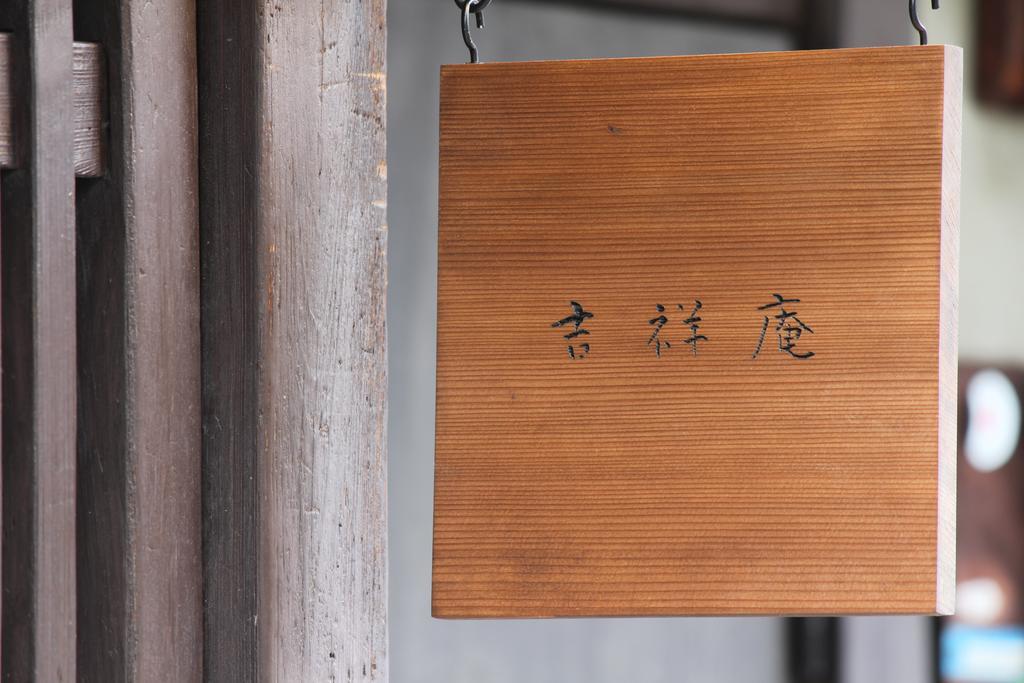 吉祥庵